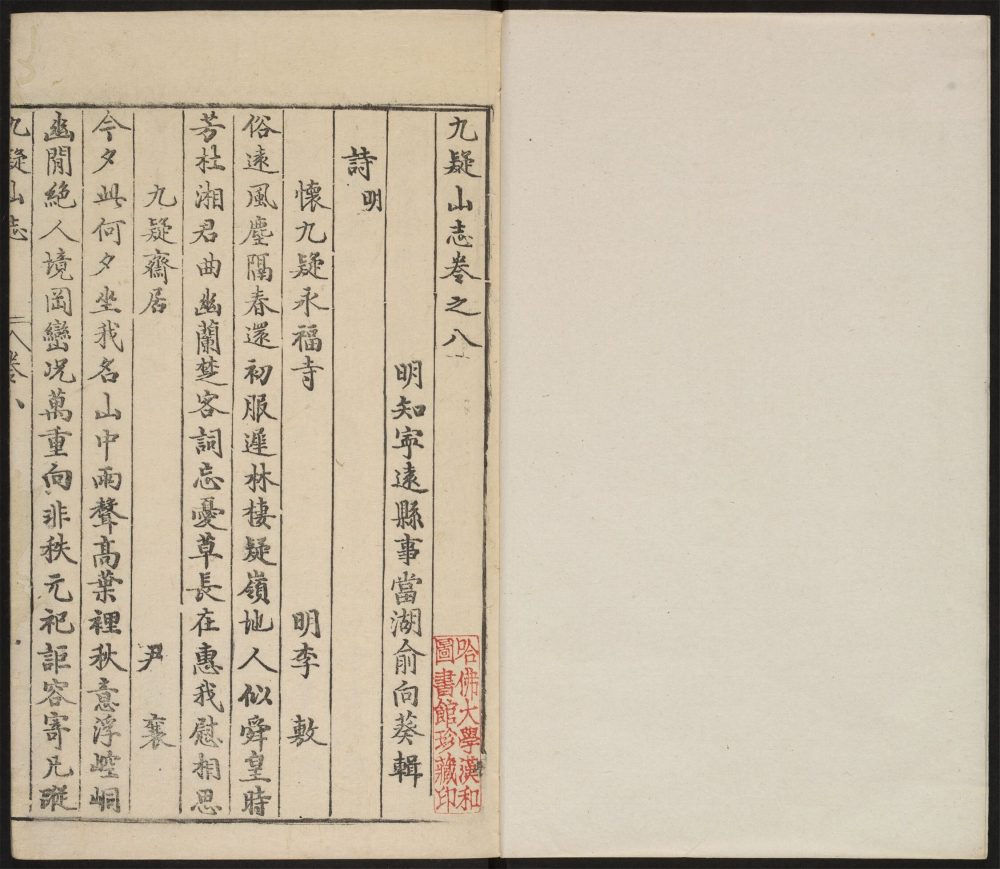 九疑山志卷之八
明知寧遠縣事當湖俞向葵輯
哈佛大學漢和
圖書館珍藏印
詩明
懷九疑永福寺 明李 敷
俗遠風塵隔春還初服遲林棲疑嶺地人似舜皇時
芳杜湘君曲幽蘭楚客詞忘憂草長在惠我慰相思
九疑齋居 尹 襄
今夕此何夕坐我名山中雨聲高葉裡秋意浮崆峒
幽閒絕人境岡巒况萬重向非秩元祀詎容寄凡蹤
九疑山志 卷八